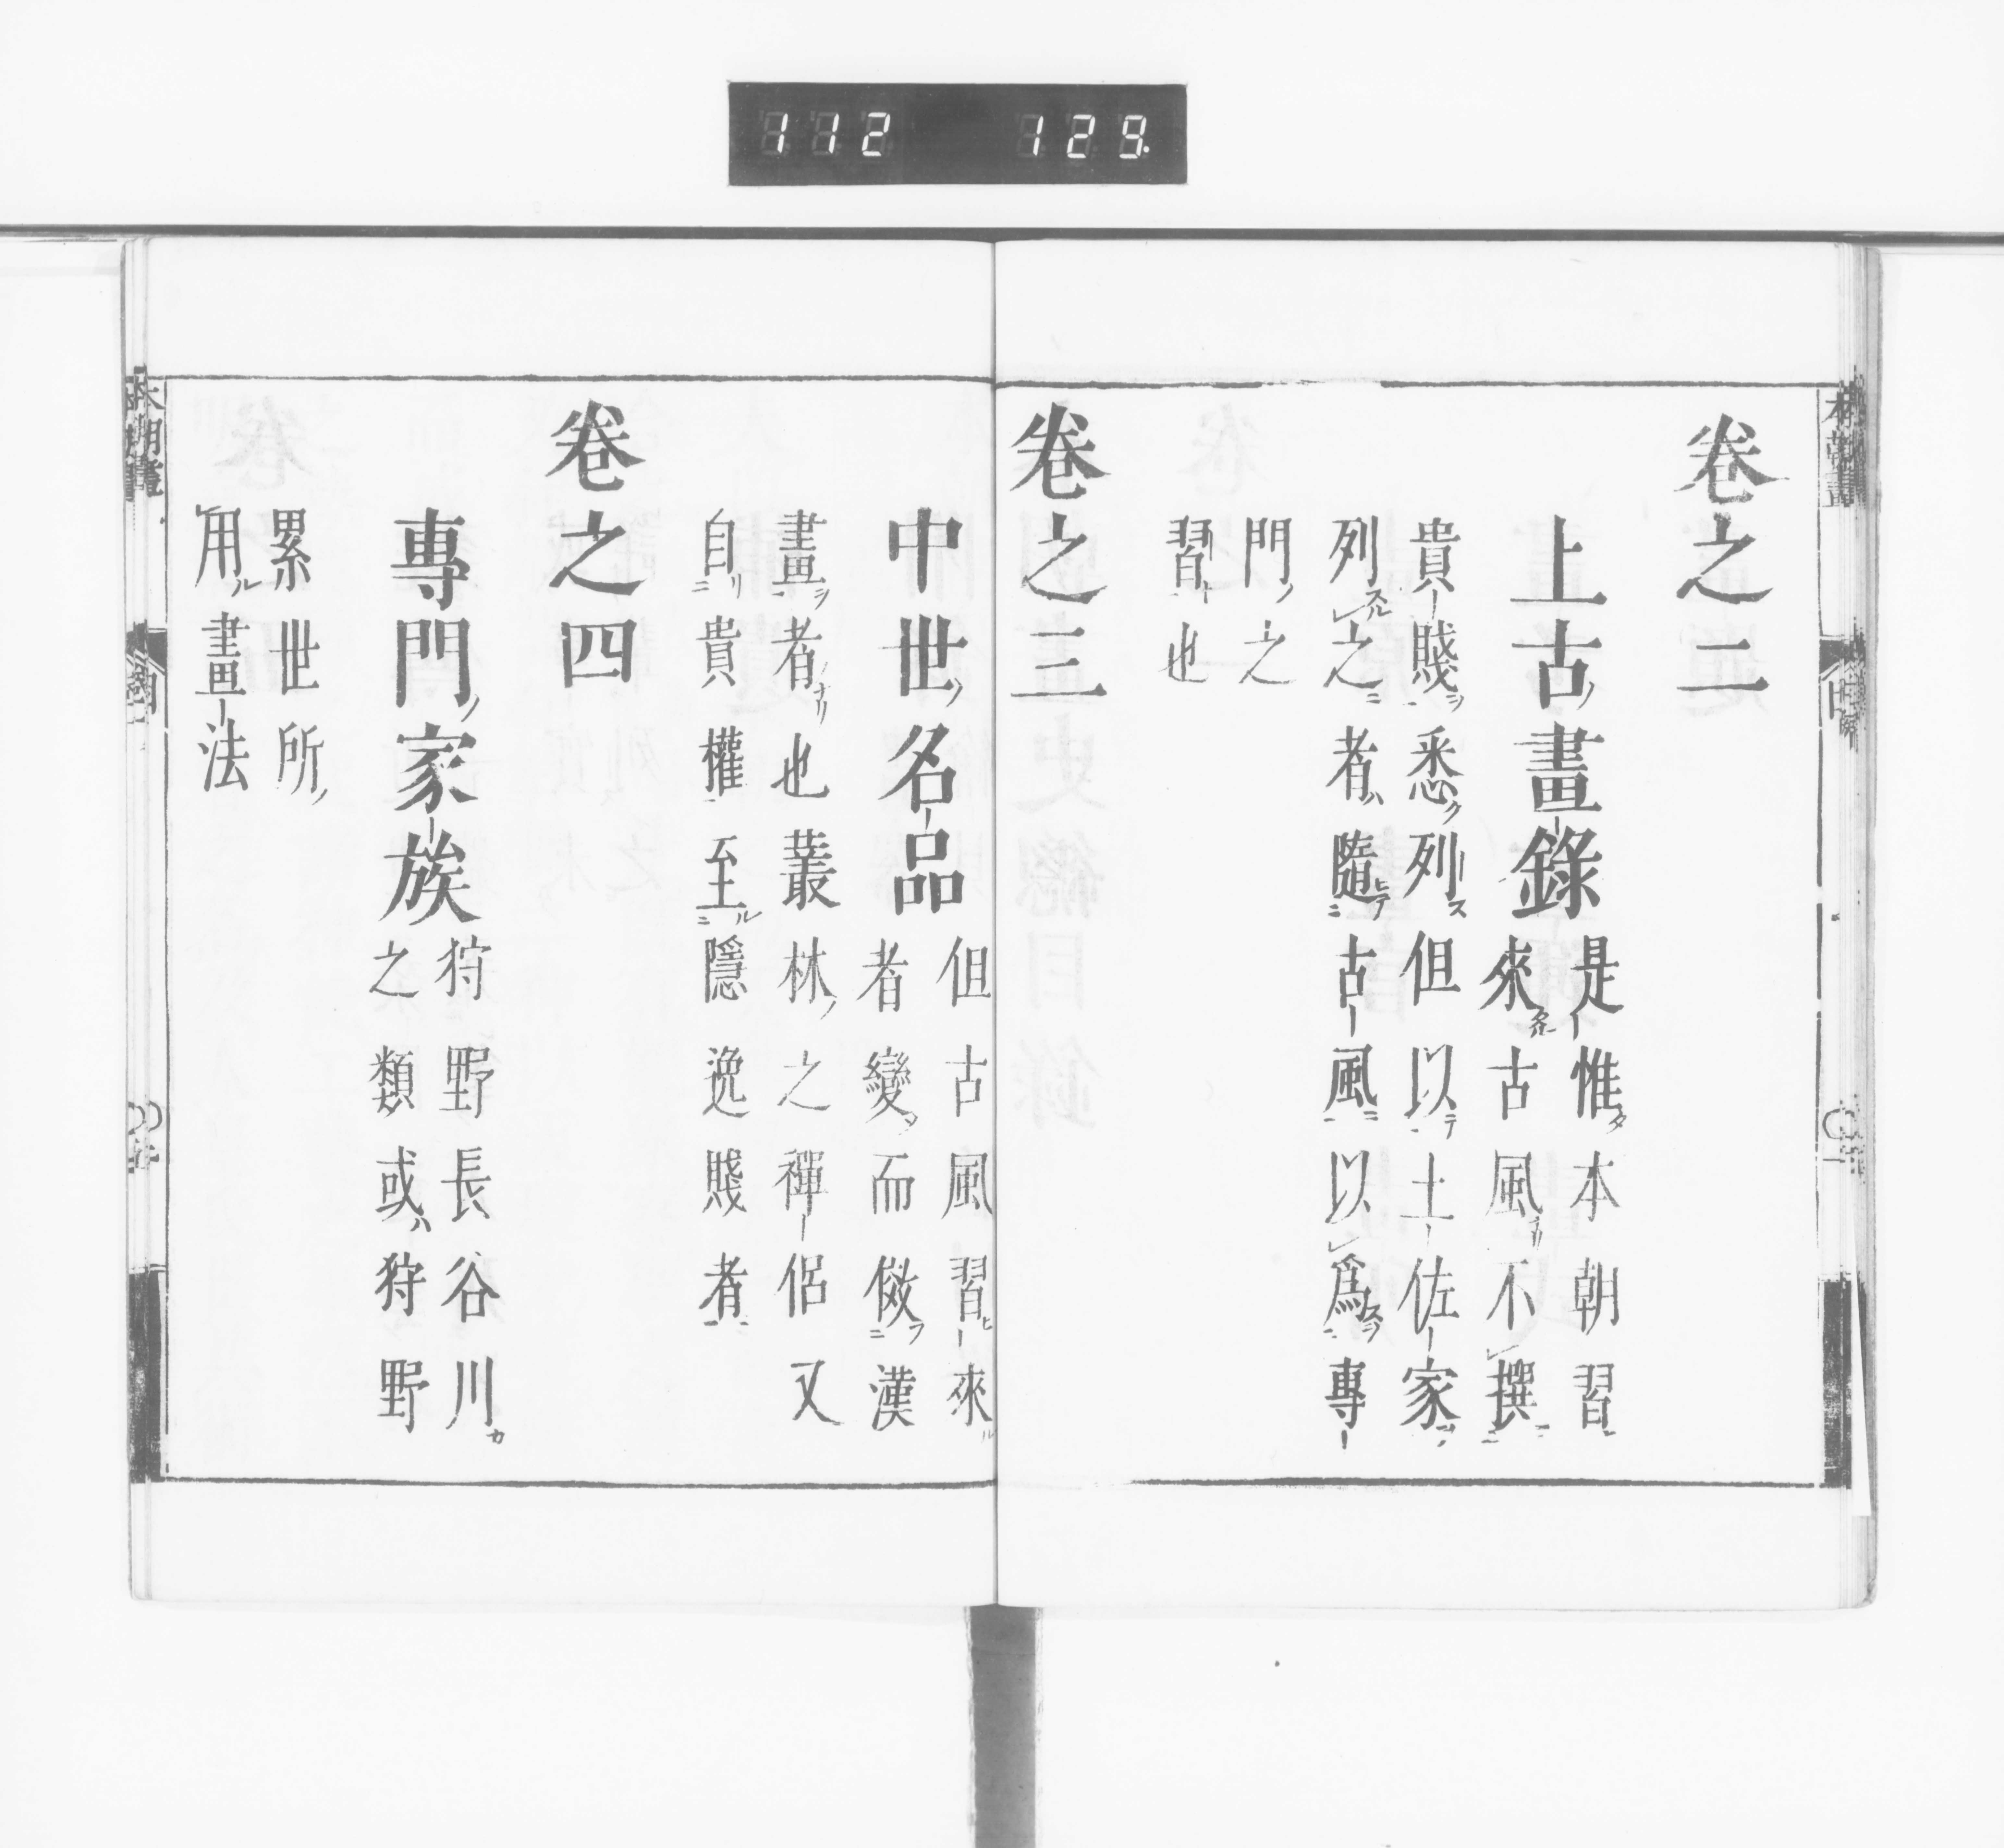 112 129
卷之二
上古畫錄
是惟本朝習
來古風不撰
貴賤悉列但以土佐家
列之者隨古風以為專
門之
習也
卷之三
中世名品
但古風習來
者變而傚漢
畫者也叢林之禪侶又
自貴權至隱逸賤者
卷之四
專門家族
狩野長谷川
之類或狩野
累世所
用畫法